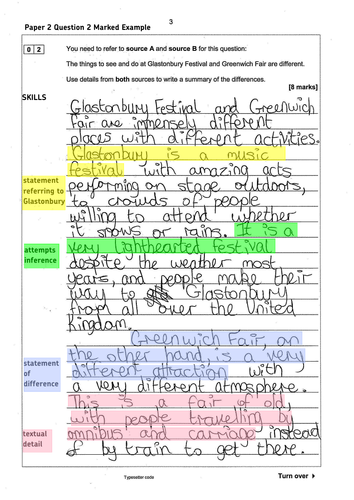 3
Paper 2 Question 2 Marked Example
0 2
You need to refer to source A and source B for this question:
The things to see and do at Glastonbury Festival and Greenwich Fair are different.
Use details from both sources to write a summary of the differences.
[8 marks]
SKILLS
Glastonbury Festival and Greenwich
Fair are immensely different
places with different activities.
Glastonbury is a music
festival with amazing acts
statement
referring to
Glastonbury
performing on stage outdoors,
to crowds of people
willing to attend whether
it snows or rains. It is a
attempts
inference
very lighthearted festival
despite the weather most
years, and people make their
way to Glastonbury
from all over the United
Kingdom.
Greenwich Fair, on
statement
of
difference
the other hand, is a very
different attraction with
a very different atmosphere.
This is a fair of old
with people travelling by
textual
detail
omnibus and carriage instead
of by train to get there.
Typesetter code
Turn over